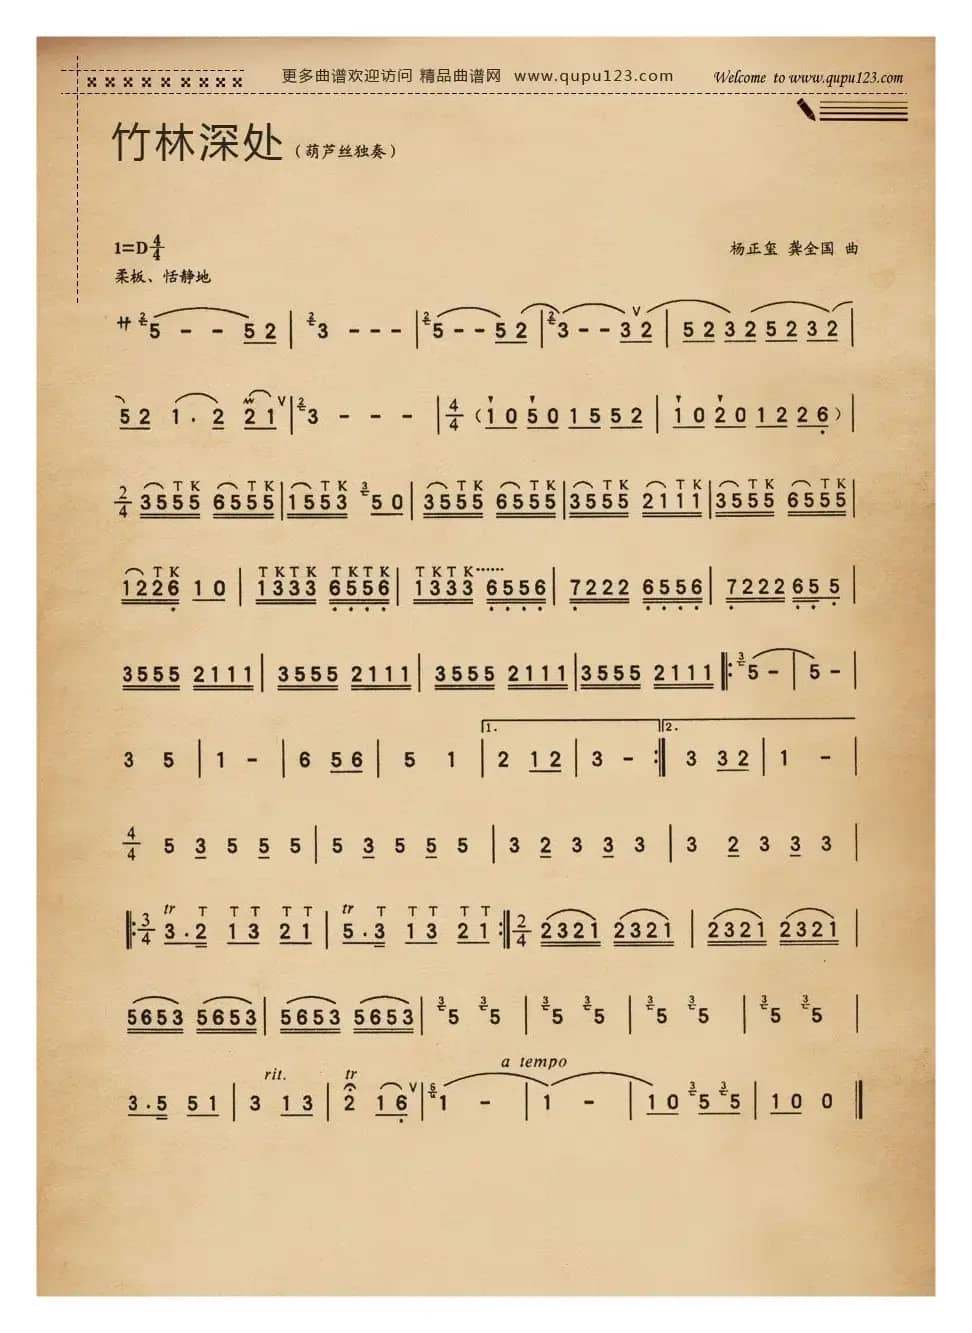 更多曲谱欢迎访问 精品曲谱网 www.qupu123.com
Welcome to www.qupu123.com
竹林深处(葫芦丝独奏)
1=D 4/4
杨正玺 龚全国 曲
柔板、恬静地
サ 2 5 - - 5 2 | 2 3 - - - | 2 5 - - 5 2 | 2 3 - - 3 2 V | 5 2 3 2 5 2 3 2 |
5 2 1 . 2 2 1 V | 2 3 - - - | 4/4 ( 1 0 5 0 1 5 5 2 | 1 0 2 0 1 2 2 6 ) |
T K T K T K T K T K T K T K T K T K
2/4 3555 6555 | 1553 3 5 0 | 3555 6555 | 3555 2111 | 3555 6555 |
T K T K T K T K T K T K T K ······
1226 1 0 | 1333 6556 | 1333 6556 | 7222 6556 | 7222 65 5 |
3555 2111 | 3555 2111 | 3555 2111 | 3555 2111 ‖: 3 5 - | 5 - |
1. 2.
3 5 | 1 - | 6 5 6 | 5 1 | 2 1 2 | 3 - :‖ 3 3 2 | 1 - |
4/4 5 3 5 5 5 | 5 3 5 5 5 | 3 2 3 3 3 | 3 2 3 3 3 |
tr T T T T T tr T T T T T
‖: 3/4 3 . 2 1 3 2 1 | 5 . 3 1 3 2 1 :‖ 2/4 2321 2321 | 2321 2321 |
5653 5653 | 5653 5653 | 3 5 3 5 | 3 5 3 5 | 3 5 3 5 | 3 5 3 5 |
rit. tr a tempo
3 . 5 5 1 | 3 1 3 | 2 1 6 V | 6 1 - | 1 - | 1 0 3 5 3 5 | 1 0 0 ‖